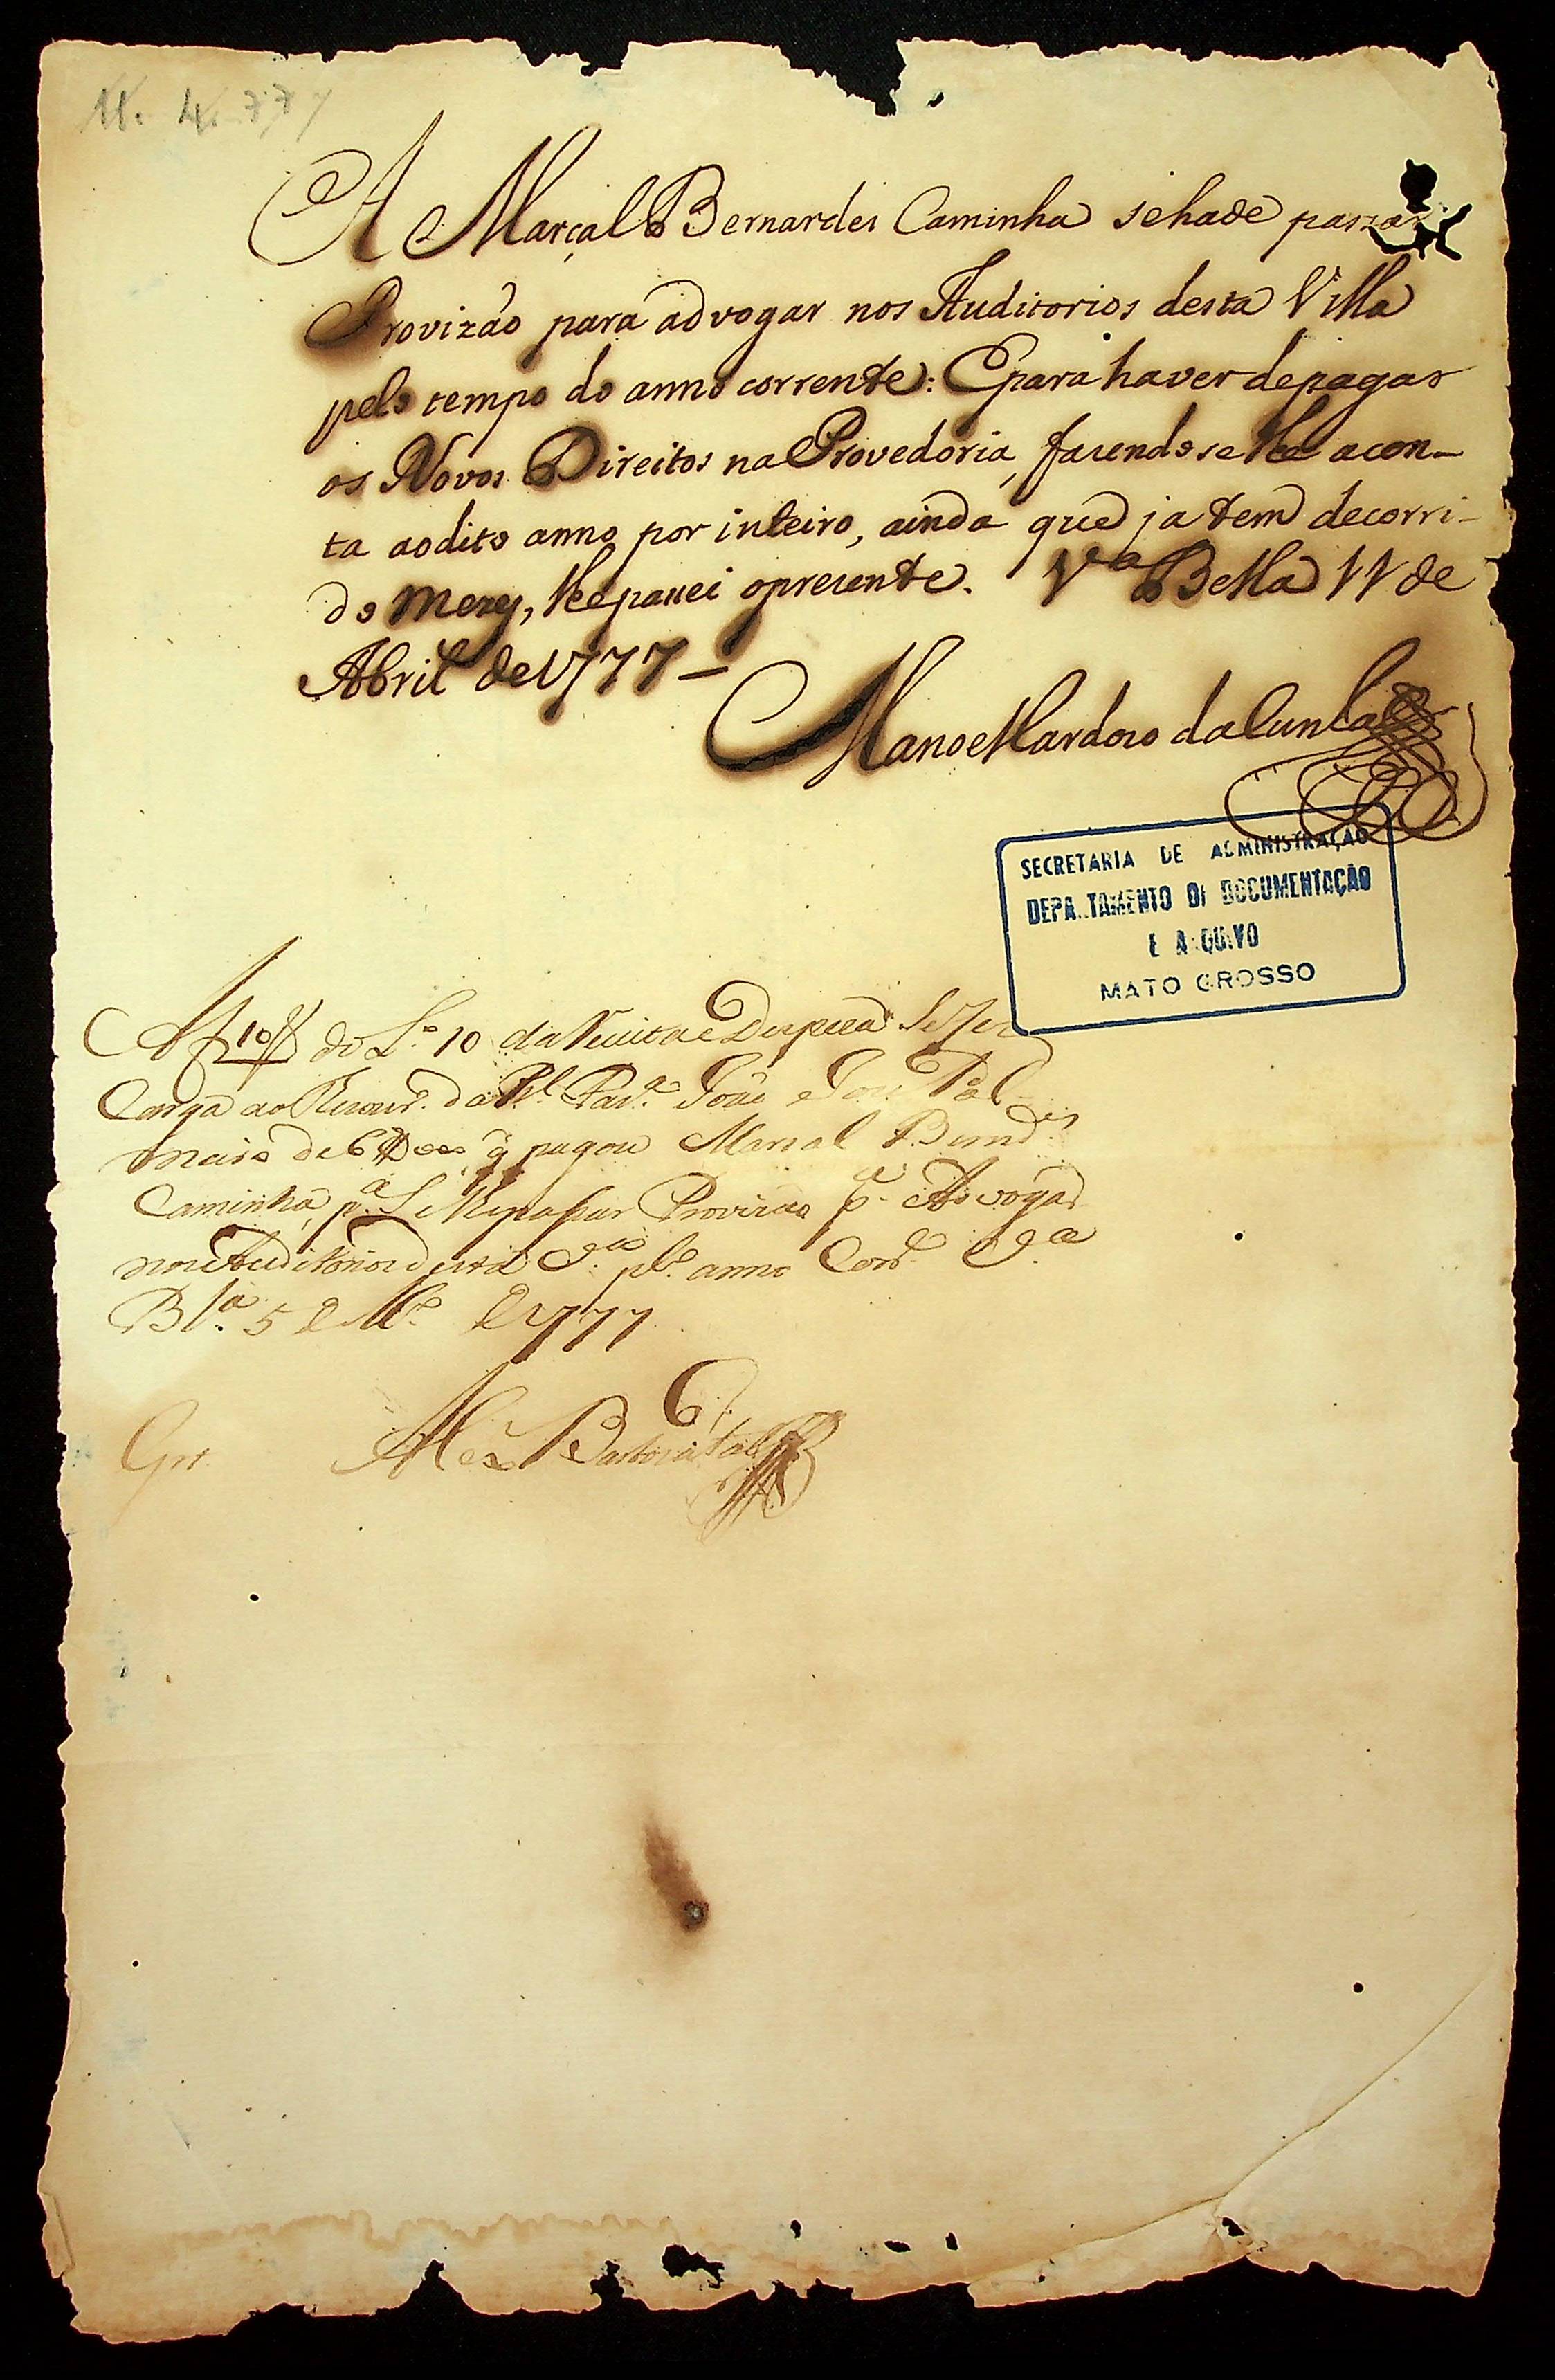 11. 4. 777
A Marçal Bernardes Caminha sehade passar
Provizão para advogar nos Auditorios desta Villa
pelo tempo do anno corrente: Epara haver depagar
os Novos Direitos na Provedoria, fasendoselhe acon-
ta aodito anno por inteiro, ainda que ja tem decorri-
do mezes, lhepassei opresente. Vª Bella 11 de
Abril de 1777 —
Manoel Cardozo da Cunha
SECRETARIA DE ADMINISTRAÇÃO
DEPARTAMENTO DE DOCUMENTAÇÃO
E ARQUIVO
MATO GROSSO
A f 10 do L.º 10 da Receita e Despeza
Carga ao da Rl. João
de q̃ pagou Marsal Bernd.es
Caminha, p.ª Provizão p.ª Advogar
nos Auditorios desta pl.º anno
Bl.ª 5 de 1777